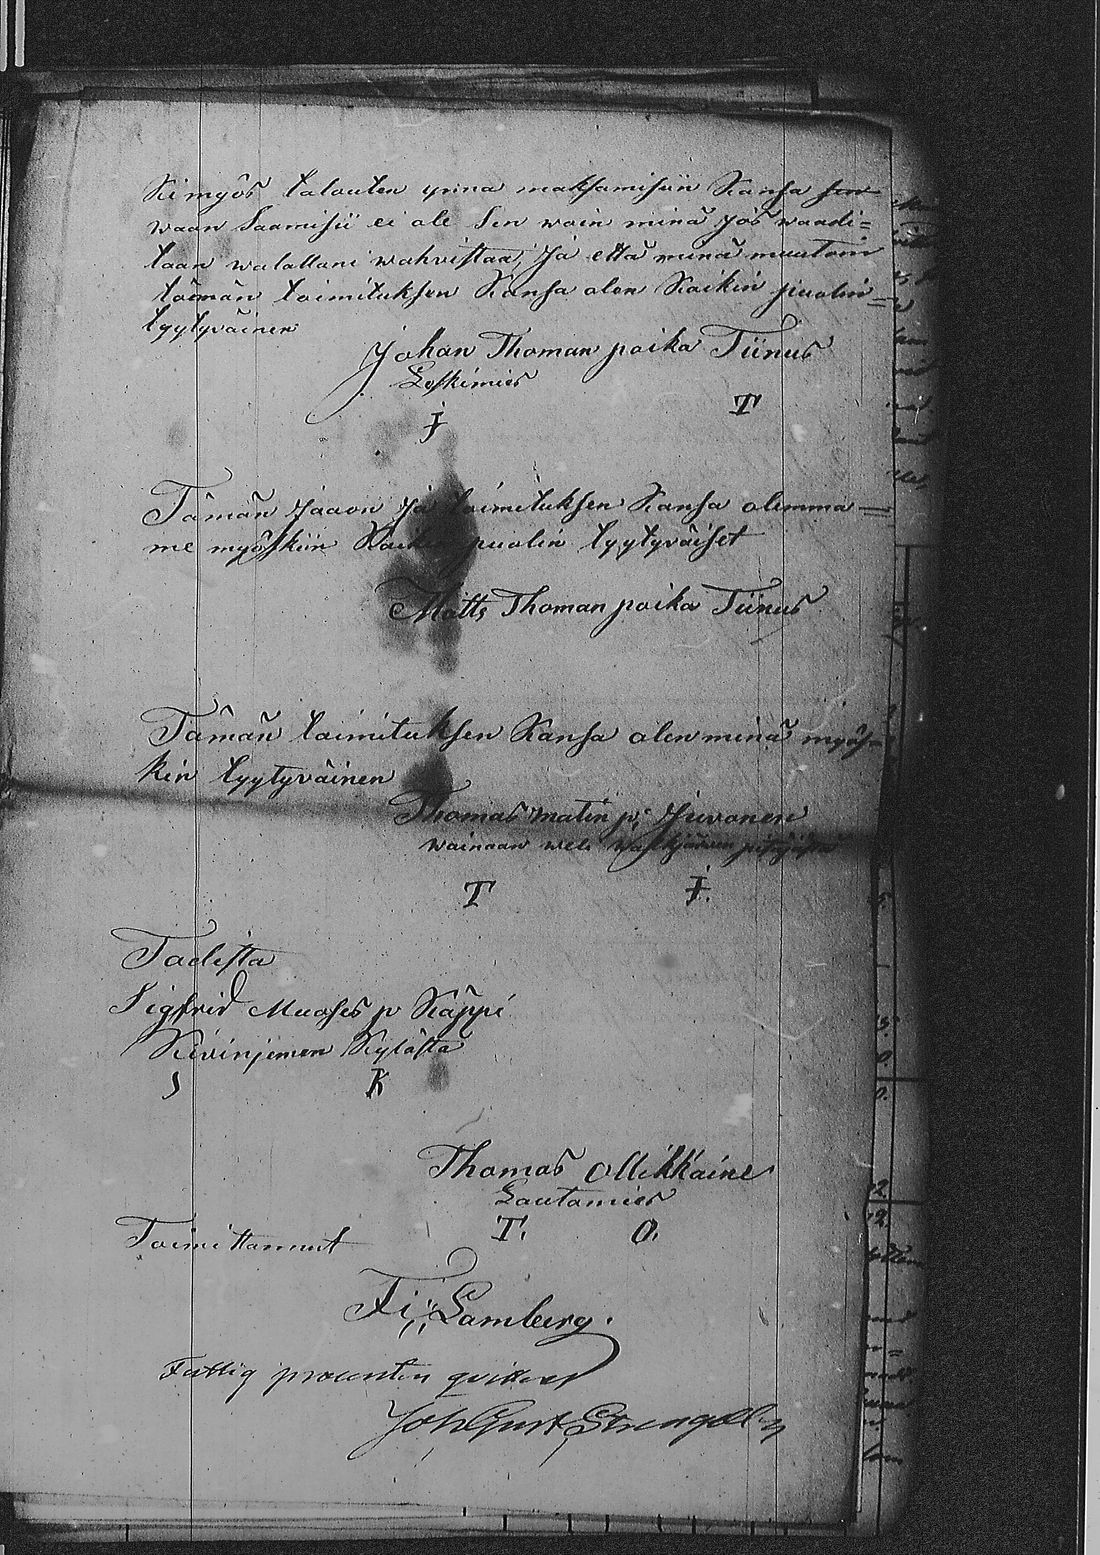 Ki myös talouten ynnä maksamisiin Kansa
waan Saamisii ei ole Sen wain minä Jos waadi=
taan walallani wahvistaa, Ja että minä muutoin
tämän toimituksen Kansa olen Kaikin puolin=
tyytyväinen
Johan Thoman poika Tiinus
Leskimies
J T
Tämän Jaaon Ja toimituksen Kansa olemma=
me myöskin Kaikin puolin tyytyväiset
Matts Thoman poika Tiinus
Tämän toimituksen Kansa olen minä myös=
kin tyytyväinen
Thomas matin p: Juvonen
wainaan weli
T J.
Todista
Sigfrid Muoses p Käppi
Kivinjemen Kylästä
S K
Thomas Ollikkaine
Lautamies
T. O.
Toimittannut
Fi; Lamberg.
Fattig procenten qvitteras
Joh Gust Strengell